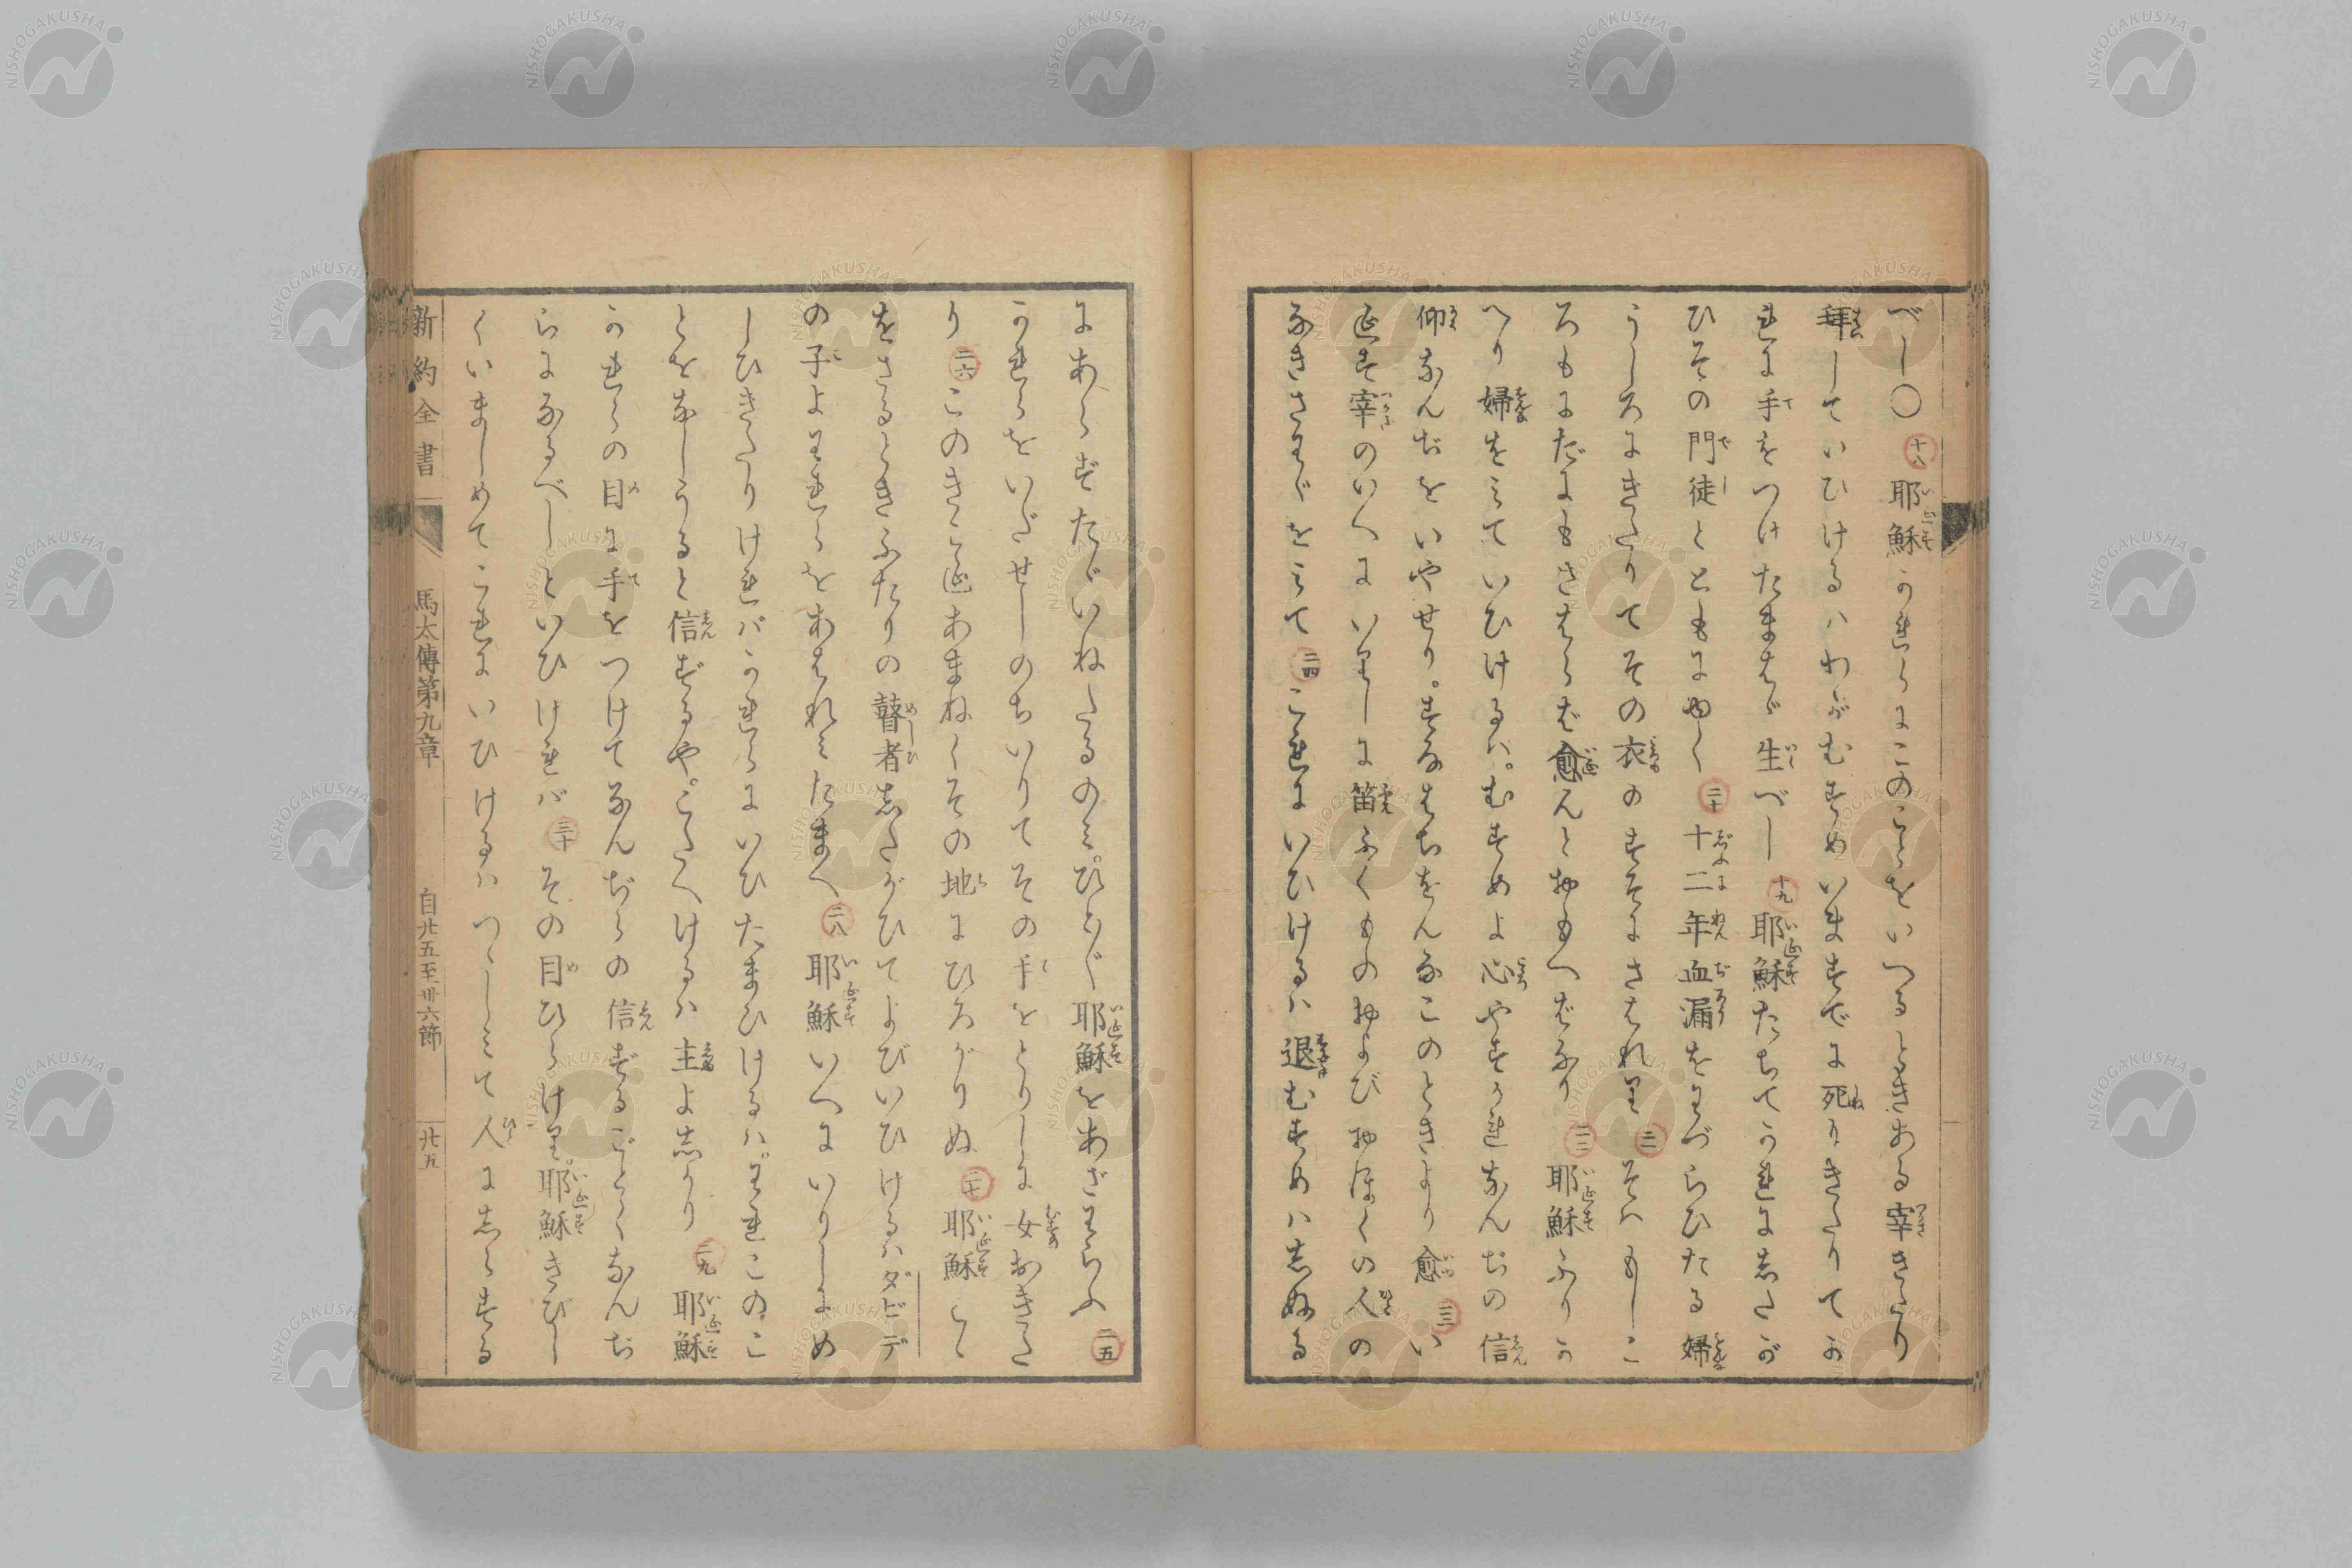 べし〇十八耶蘇かれらにこのことをいへるときある宰きたり
拜していひけるハわがむすめいますでに死りきたりてか
れに手をつけたまはゞ生べし十九耶蘇たちてかれにしたが
ひその門徒とともにゆく二十十二年血漏をわづらひたる婦
うしろにきたりてその衣のすそにさはれり廿一そハもしこ
ろもにだにもさはらば愈んとおもへばなり廿二耶蘇ふりか
へり婦をみていひけるハ。むすめよ心やすかれなんぢの信
仰なんぢをいやせり。すなはちをんなこのときより愈廿三い
ゑす宰のいへにいりしに笛ふくものおよびおほくの人の
なきさわぐをみて二四これにいひけるハ退むすめハしぬる
にあらずたゞいねたるのミ。ひとびと耶蘇をあざわらふ二五
かれらをいだせしのちいりてその手をとりしに女おきた
り二六このきこゑあまねくその地にひろがりぬ二七耶蘇こゝ
をさるときふたりの瞽者したがひてよびいひけるハダビデ
の子よわれらをあはれミたまへ二八耶蘇いへにいりしにめ
しひきたりけれバかれらにいひたまひけるハ。われこのこ
とをなしうると信ずるや。こたへけるハ主よしかり二九耶蘇
かれらの目に手をつけてなんぢらの信ずるごとくなんぢ
らになるべしといひけれバ三十その目ひらけり。耶蘇きびし
くいましめてこれにいひけるハつゝしミて人にしらする
新約全書　馬太傳第九章　自廿五至卅六節　廿五